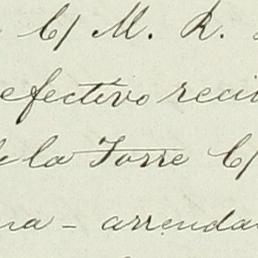 C/ M. R.
efectivo reci
de la Torre C/
na - arrenda